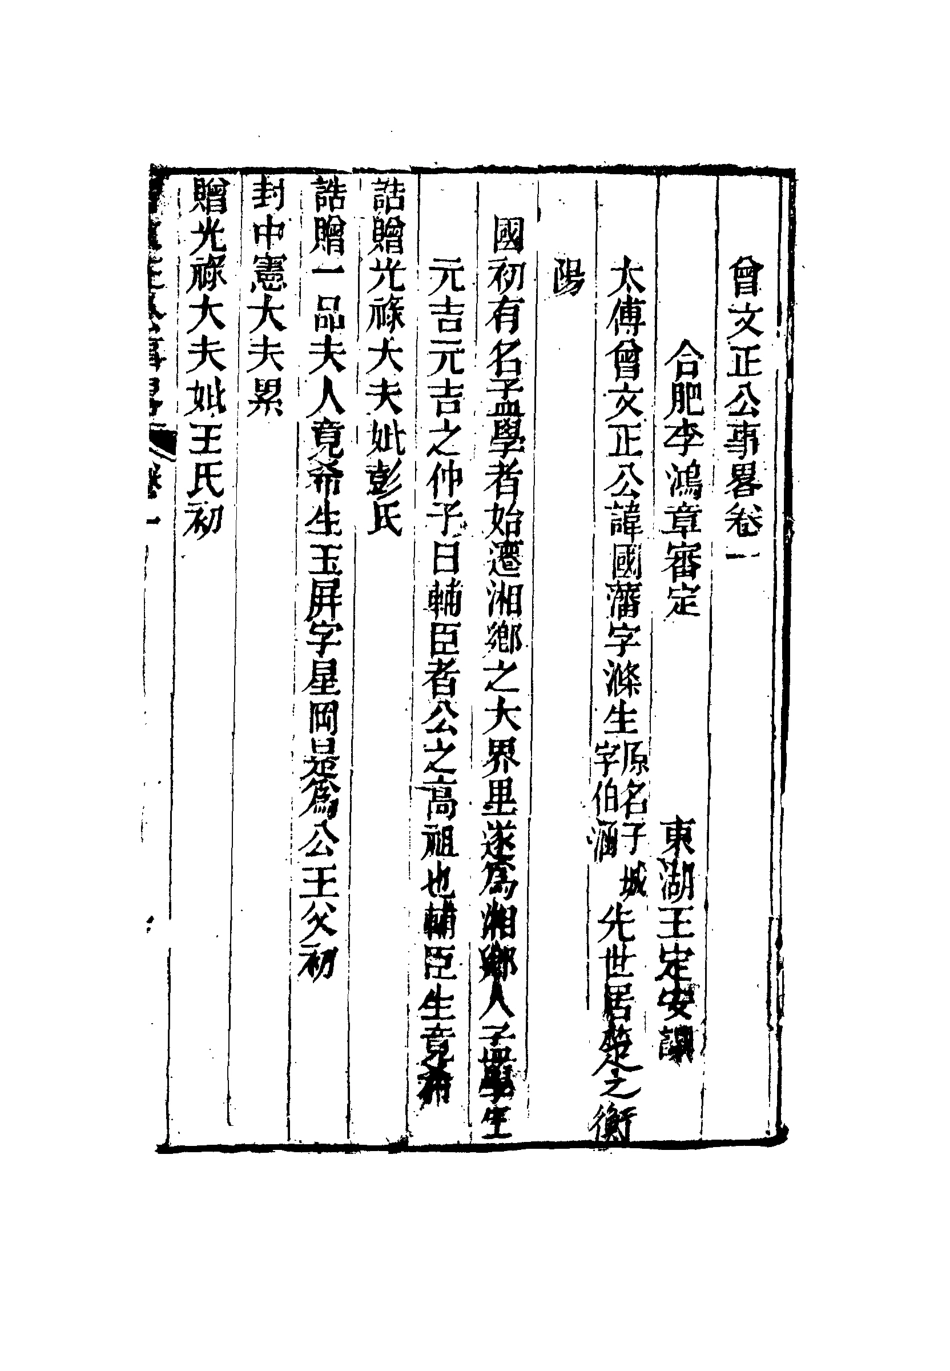 曾文正公事畧卷一
合肥李鴻章審定 東湖王定安譔
太傅曾文正公諱國藩字滌生原名子城字伯涵先世居楚之衡
陽
國初有名孟學者始遷湘鄉之大界里遂爲湘鄉人孟學生
元吉元吉之仲子曰輔臣者公之高祖也輔臣生竟希
誥贈光祿大夫妣彭氏
誥贈一品夫人竟希生玉屏字星岡是爲公王父初
封中憲大夫累
贈光祿大夫妣王氏初
曾文正公事畧 卷一